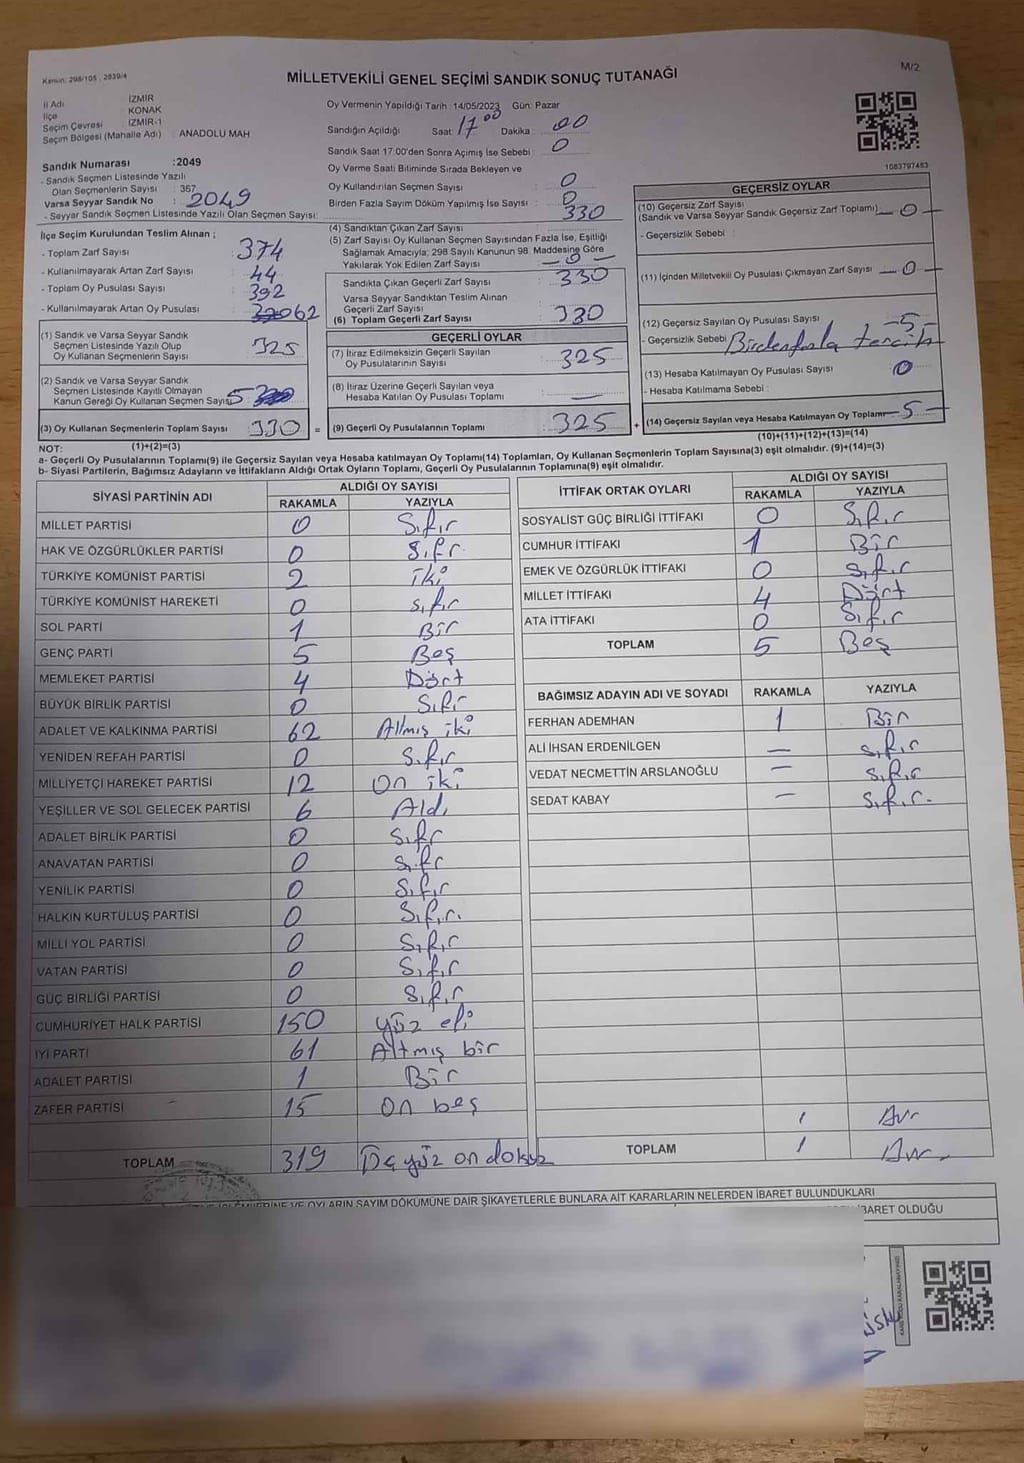 Kanun: 298/105 , 2839/4
MİLLETVEKİLİ GENEL SEÇİMİ SANDIK SONUÇ TUTANAĞI
M/2
İl Adı İZMİR
İlçe KONAK
Seçim Çevresi İZMİR-1
Seçim Bölgesi (Mahalle Adı) : ANADOLU MAH
Sandık Numarası :2049
- Sandık Seçmen Listesinde Yazılı
Olan Seçmenlerin Sayısı : 367
Varsa Seyyar Sandık No : 2049
- Seyyar Sandık Seçmen Listesinde Yazılı Olan Seçmen Sayısı:
Oy Vermenin Yapıldığı Tarih :14/05/2023 Gün: Pazar
Sandığın Açıldığı Saat: 17 00 Dakika : 00
Sandık Saat 17:00'den Sonra Açımış İse Sebebi : 0
Oy Verme Saati Bitiminde Sırada Bekleyen ve
Oy Kullandırılan Seçmen Sayısı : 0
Birden Fazla Sayım Döküm Yapılmış İse Sayısı : 0
1083797463
İlçe Seçim Kurulundan Teslim Alınan ;
- Toplam Zarf Sayısı : 374
- Kullanılmayarak Artan Zarf Sayısı : 44
- Toplam Oy Pusulası Sayısı : 392
- Kullanılmayarak Artan Oy Pusulası : 62
(1) Sandık ve Varsa Seyyar Sandık
Seçmen Listesinde Yazılı Olup
Oy Kullanan Seçmenlerin Sayısı : 325
(2) Sandık ve Varsa Seyyar Sandık
Seçmen Listesinde Kayıtlı Olmayan
Kanun Gereği Oy Kullanan Seçmen Sayısı 5
(3) Oy Kullanan Seçmenlerin Toplam Sayısı : 330
(1)+(2)=(3)
(4) Sandıktan Çıkan Zarf Sayısı : 330
(5) Zarf Sayısı Oy Kullanan Seçmen Sayısından Fazla İse, Eşitliği
Sağlamak Amacıyla; 298 Sayılı Kanunun 98. Maddesine Göre
Yakılarak Yok Edilen Zarf Sayısı : -0-
Sandıkta Çıkan Geçerli Zarf Sayısı : 330
Varsa Seyyar Sandıktan Teslim Alınan
Geçerli Zarf Sayısı :
(6) Toplam Geçerli Zarf Sayısı : 330
GEÇERLİ OYLAR
(7) İtiraz Edilmeksizin Geçerli Sayılan
Oy Pusulalarının Sayısı : 325
(8) İtiraz Üzerine Geçerli Sayılan veya
Hesaba Katılan Oy Pusulası Toplamı : —
= (9) Geçerli Oy Pusulalarının Toplamı : 325
GEÇERSİZ OYLAR
(10) Geçersiz Zarf Sayısı
(Sandık ve Varsa Seyyar Sandık Geçersiz Zarf Toplamı) -0-
- Geçersizlik Sebebi :
(11) İçinden Milletvekili Oy Pusulası Çıkmayan Zarf Sayısı -0-
(12) Geçersiz Sayılan Oy Pusulası Sayısı : -5-
- Geçersizlik Sebebi : Birden fazla tercih
(13) Hesaba Katılmayan Oy Pusulası Sayısı : 0
- Hesaba Katılmama Sebebi :
+ (14) Geçersiz Sayılan veya Hesaba Katılmayan Oy Toplamı -5-
(10)+(11)+(12)+(13)=(14)
NOT:
a- Geçerli Oy Pusulalarının Toplamı(9) ile Geçersiz Sayılan veya Hesaba katılmayan Oy Toplamı(14) Toplamları, Oy Kullanan Seçmenlerin Toplam Sayısına(3) eşit olmalıdır. (9)+(14)=(3)
b- Siyasi Partilerin, Bağımsız Adayların ve İttifakların Aldığı Ortak Oyların Toplamı, Geçerli Oy Pusulalarının Toplamına(9) eşit olmalıdır.
SİYASİ PARTİNİN ADI ALDIĞI OY SAYISI
RAKAMLA YAZIYLA
MİLLET PARTİSİ 0 Sıfır
HAK VE ÖZGÜRLÜKLER PARTİSİ 0 Sıfr
TÜRKİYE KOMÜNİST PARTİSİ 2 iki
TÜRKİYE KOMÜNİST HAREKETİ 0 sıfır
SOL PARTİ 1 Bir
GENÇ PARTİ 5 Beş
MEMLEKET PARTİSİ 4 Dört
BÜYÜK BİRLİK PARTİSİ 0 Sıfır
ADALET VE KALKINMA PARTİSİ 62 Altmış iki
YENİDEN REFAH PARTİSİ 0 Sıfır
MİLLİYETÇİ HAREKET PARTİSİ 12 On iki
YEŞİLLER VE SOL GELECEK PARTİSİ 6 Aldı
ADALET BİRLİK PARTİSİ 0 Sıfr
ANAVATAN PARTİSİ 0 Sıfr
YENİLİK PARTİSİ 0 Sıfır
HALKIN KURTULUŞ PARTİSİ 0 Sıfır.
MİLLİ YOL PARTİSİ 0 Sıfır
VATAN PARTİSİ 0 Sıfır
GÜÇ BİRLİĞİ PARTİSİ 0 Sıfır
CUMHURİYET HALK PARTİSİ 150 yüz eli
İYİ PARTİ 61 Altmış bir
ADALET PARTİSİ 1 Bir
ZAFER PARTİSİ 15 On beş
TOPLAM 319 Üçyüz on dokuz
İTTİFAK ORTAK OYLARI ALDIĞI OY SAYISI
RAKAMLA YAZIYLA
SOSYALİST GÜÇ BİRLİĞİ İTTİFAKI 0 Sıfır
CUMHUR İTTİFAKI 1 Bir
EMEK VE ÖZGÜRLÜK İTTİFAKI 0 Sıfır
MİLLET İTTİFAKI 4 Dört
ATA İTTİFAKI 0 Sıfır
TOPLAM 5 Beş
BAĞIMSIZ ADAYIN ADI VE SOYADI RAKAMLA YAZIYLA
FERHAN ADEMHAN 1 Bir
ALİ İHSAN ERDENİLGEN — sıfır
VEDAT NECMETTİN ARSLANOĞLU — sıfır
SEDAT KABAY — sıfır.
1
TOPLAM 1
VE OYLARIN SAYIM DÖKÜMÜNE DAİR ŞİKAYETLERLE BUNLARA AİT KARARLARIN NELERDEN İBARET BULUNDUKLARI
İBARET OLDUĞU